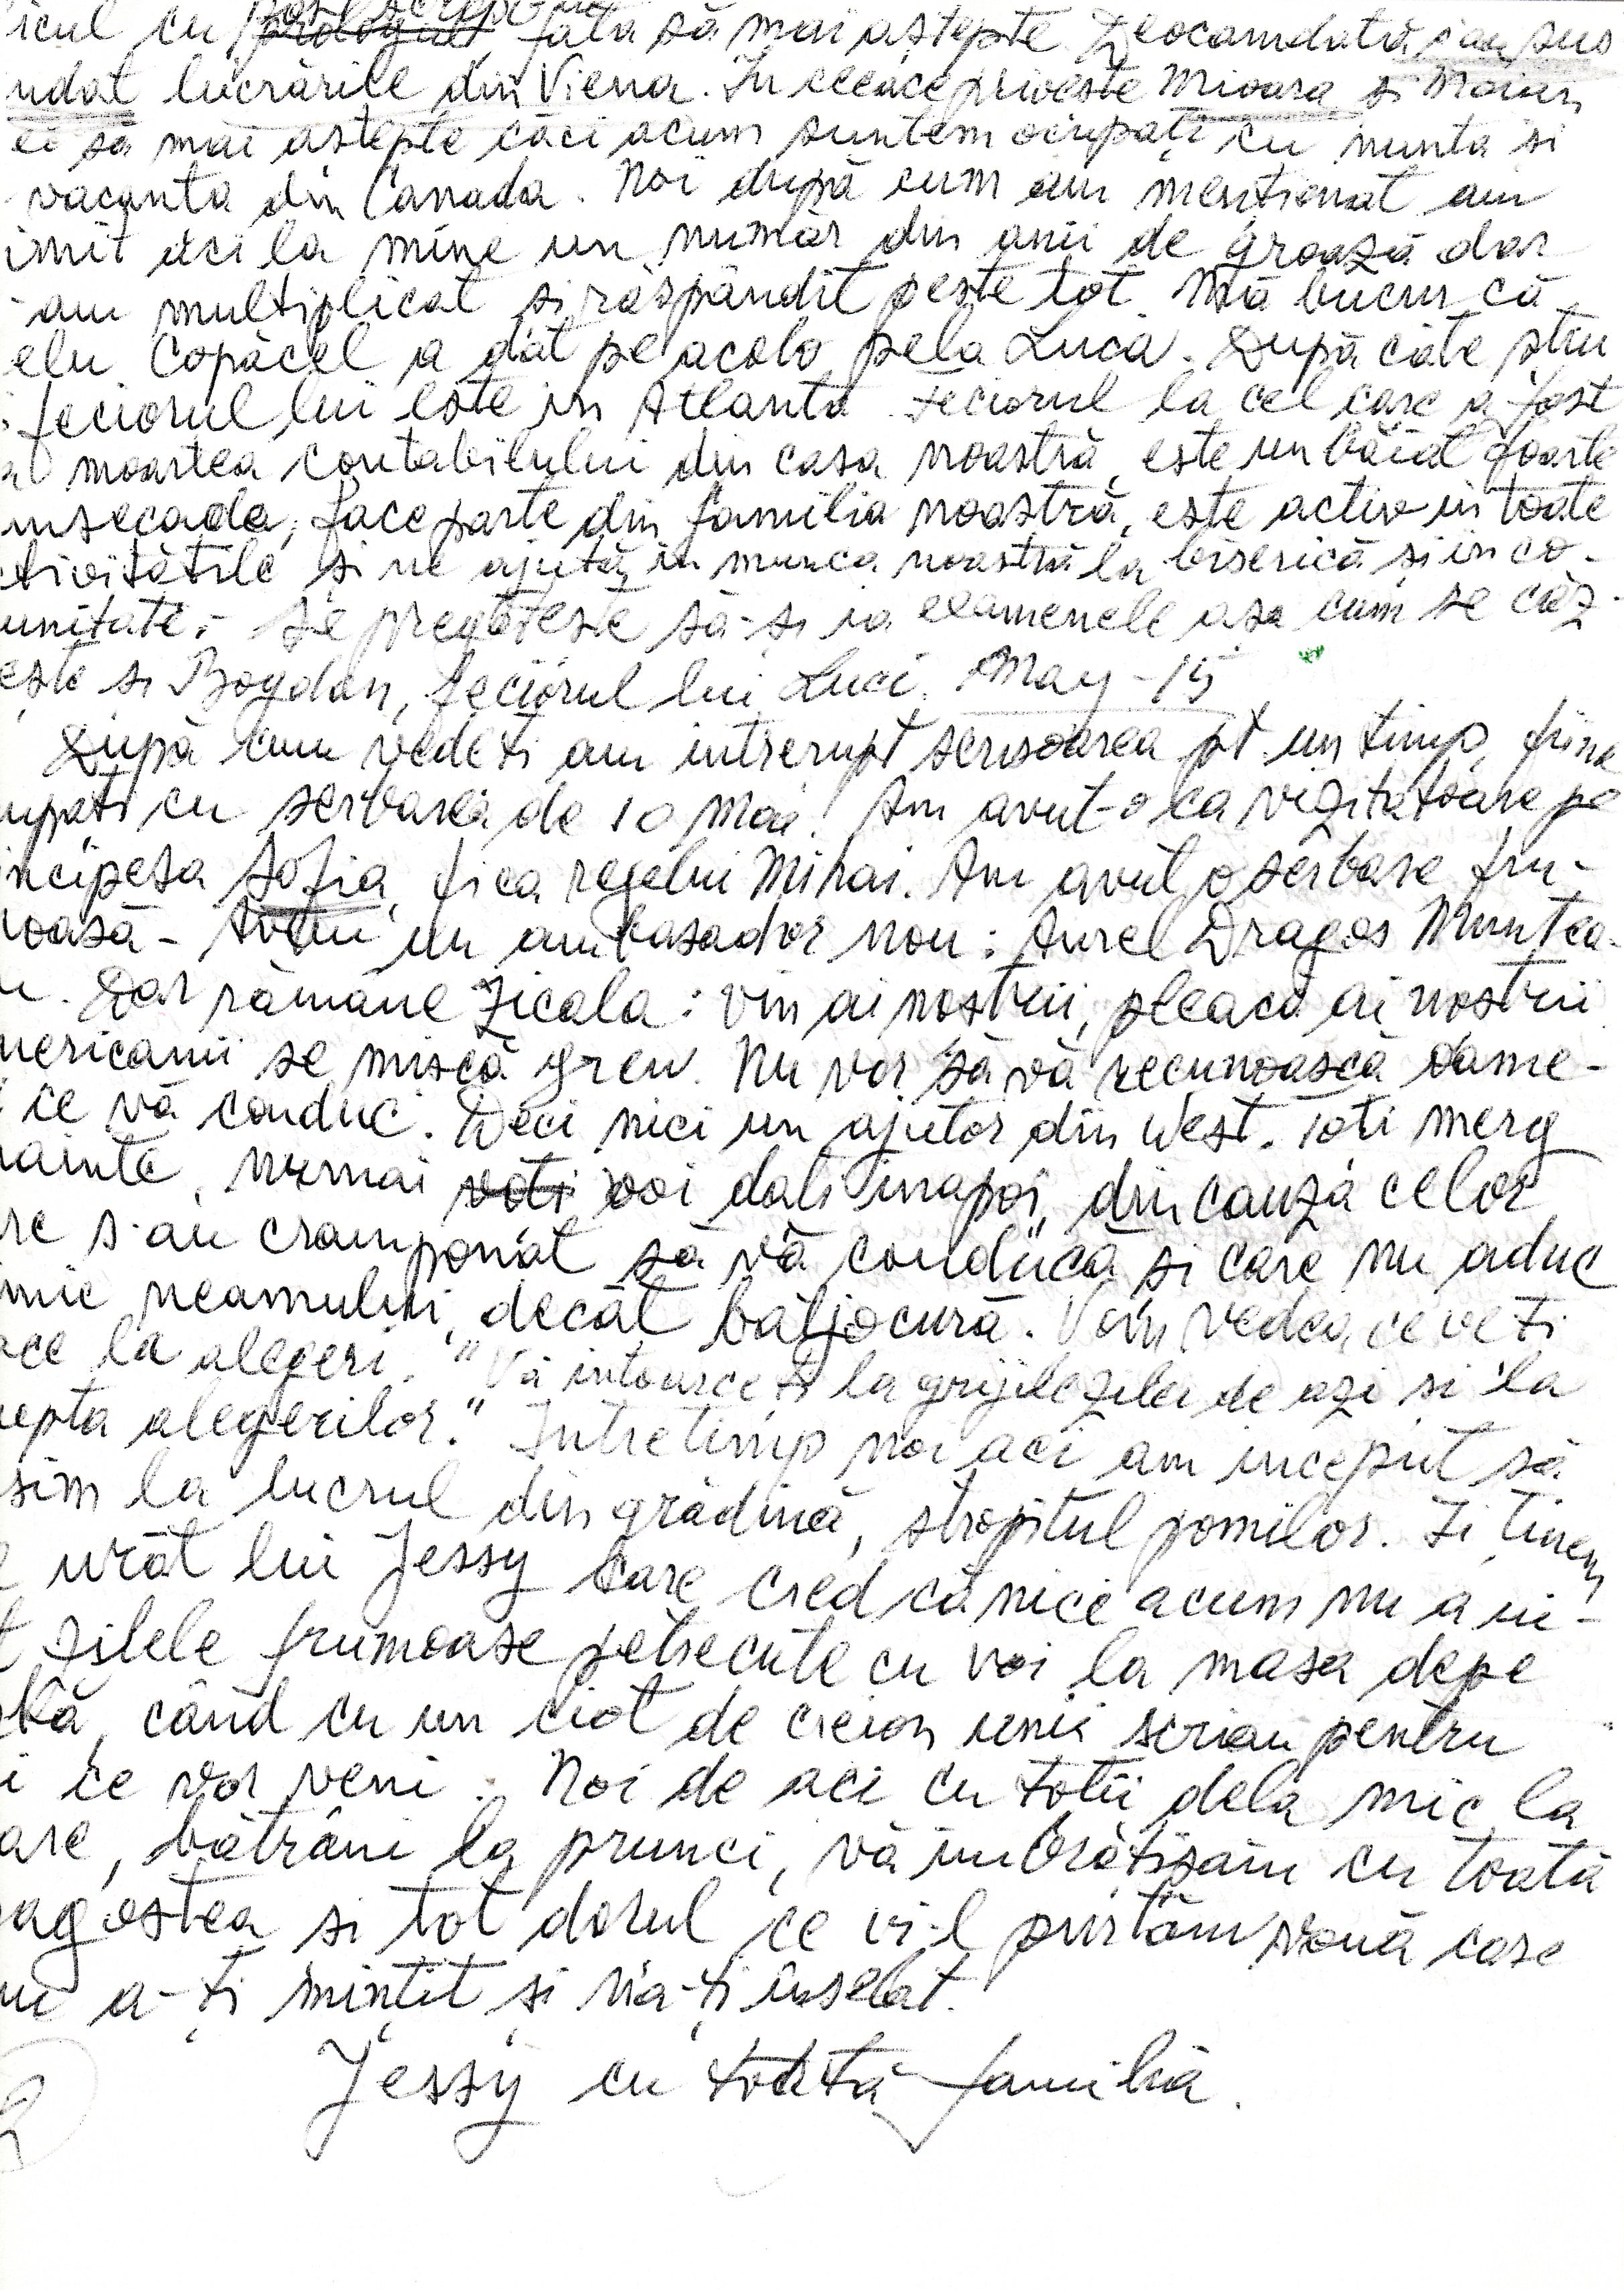 post scriptum
icul cu prologul, fata să mai aștepte. Deocamdată s'au sus
ndat lucrările din Viena. In ceeace privește Mioara si Marian
ei să mai astepte căci acum suntem ocupați cu nunta si
vacanta din Canada. Noi după cum am menționat am
imit aci la mine un număr din anii de groază dar
-am multiplicat si răspândit peste tot. Mă bucur că
elu Copăcel a dat pe acolo pela Luca. După câte știu
feciorul lui este in Atlanta. Feciorul la cel care a fost
moartea contabilului din casa noastră, este un băiat foarte
umsecade, face parte din familia noastră, este activ in toate
ctivitătile și ne ajută in munca noastră la biserică și in co-
unitate.- Se pregătește să-și ia examenele asa cum se căz-
ește si Bogdan, feciorul lui Luci. May - 15
După cum vedeți am intrerupt scrisoarea pt. un timp, fiind
upati cu serbarea de 10 Mai! Am avut-o ca vizitatoare pe
incipesa Sofia, fica regelui Mihai. Am avut o serbare fru-
moasă - Avem un ambasador nou: Aurel Dragos Muntea-
u. Dar rămâne zicala: vin ai nostrii, pleacă ai nostrii
mericanii se mișcă greu. Nu vor să vă recunoască oame-
ce vă conduc. Deci nici un ajutor din West. Toti merg
nainte, numai voti voi dati inapoi, din cauza celor
re s-au cramponat să vă conducă si care nu aduc
mic neamului, decât batjocură. Vom vedea ce veți
ace la alegeri. "Vă intoarceți la grijile zilei de azi si la
epta alegerilor." Intre timp noi aci am inceput să
sim la lucrul din grădină, stropitul pomilor. Ii ținem
urât lui Jessy care cred că nici acum nu a ui-
t zilele frumoase petrecute cu voi la masa depe
bă, când cu un ciot de creion unii scriau pentru
i ce vor veni. Noi de aci cu totii dela mic la
are, bătrâni la prunci, vă imbrățișăm cu toată
agostea si tot dorul ce vi-l purtăm vouă care
nu a-ți mințit și n'a-ți inselat.
Jessy cu toată familia.
2